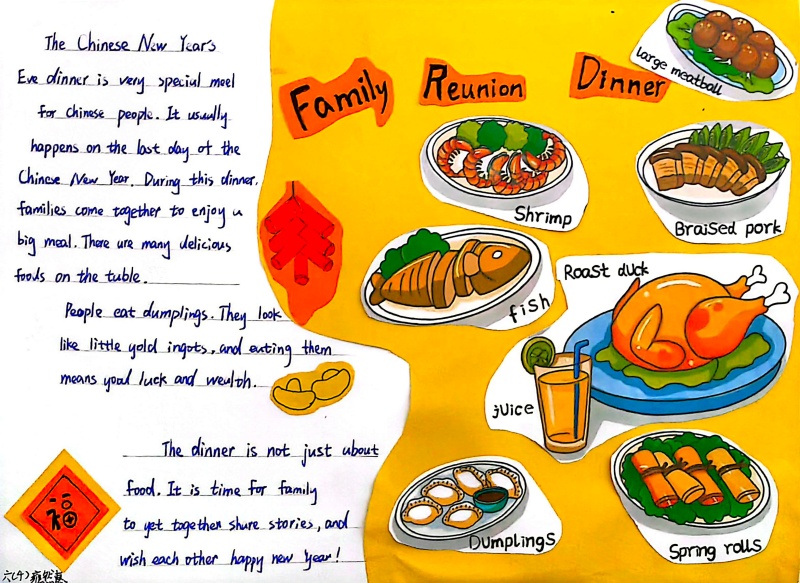 The Chinese New Year's
Eve dinner is very special meel
for chinese people. It usually
happens on the last day of the
Chinese New Year. During this dinner,
families come together to enjoy a
big meal. There are many delicious
foods on the table.
People eat dumplings. They look
like little gold ingots, and eating them
means good luck and wealth.
The dinner is not just about
food. It is time for family
to get together share stories, and
wish each other happy new year!
福
Family Reunion Dinner
large meatball
Shrimp
Braised pork
fish
Roast duck
juice
Dumplings
Spring rolls